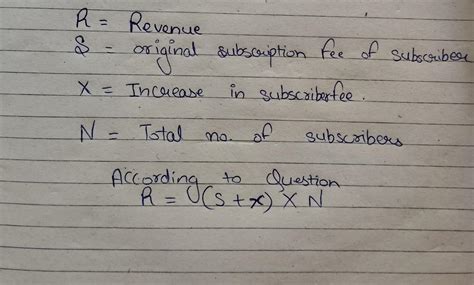 R = Revenue
S = original subscription fee of subscriber
X = Increase in subscriberfee.
N = Total no. of subscribers
According to Question
R = (S + x) X N